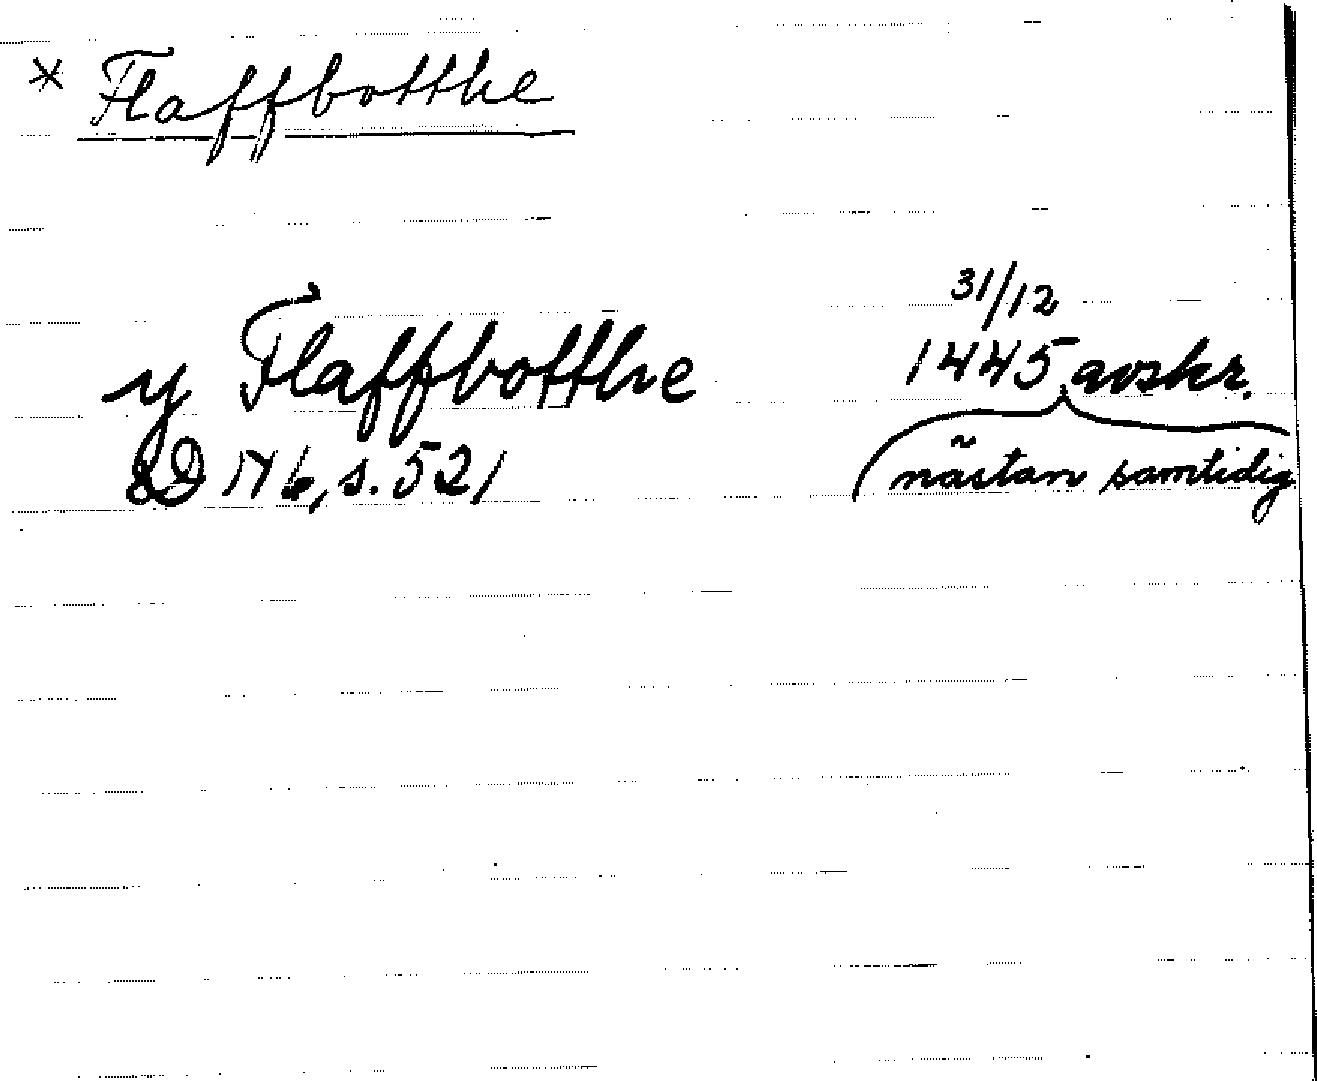 * Flaffbotthe
31/12
y Flaffbotthe 1445 avskr.
nästan samtidig
SD N 6, s. 521